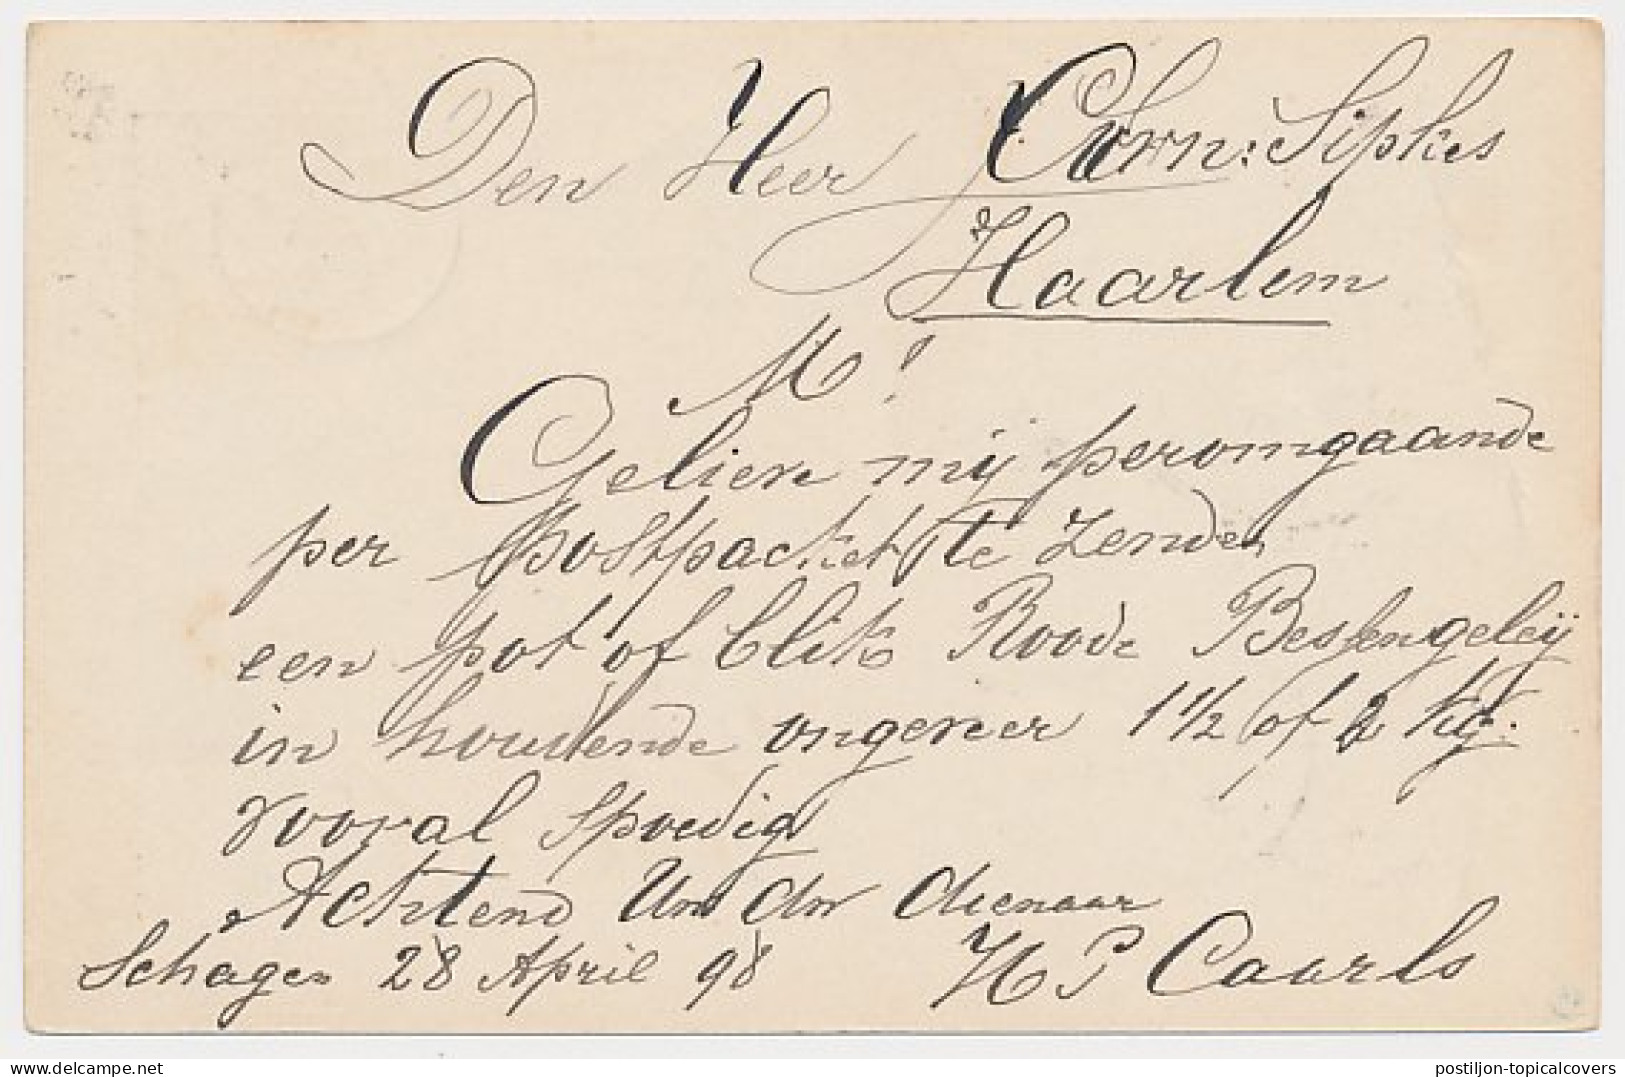 Den Heer Corn: Sipkes
Haarlem
M!
Gelieve mij peromgaande
per postpacket te zenden
een pot of blik Roode Bessengeleij
in houdende ongeveer 1 1/2 of 2 kg.
vooral spoedig
Achtend Uw dw dienaar
Schagen 28 April 98 H P Caarls
Delcampe.net
postiljon-topicalcovers